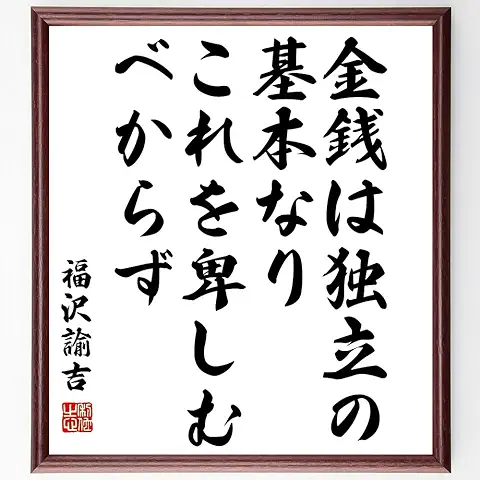 金銭は独立の
基本なり
これを卑しむ
べからず
福沢諭吉